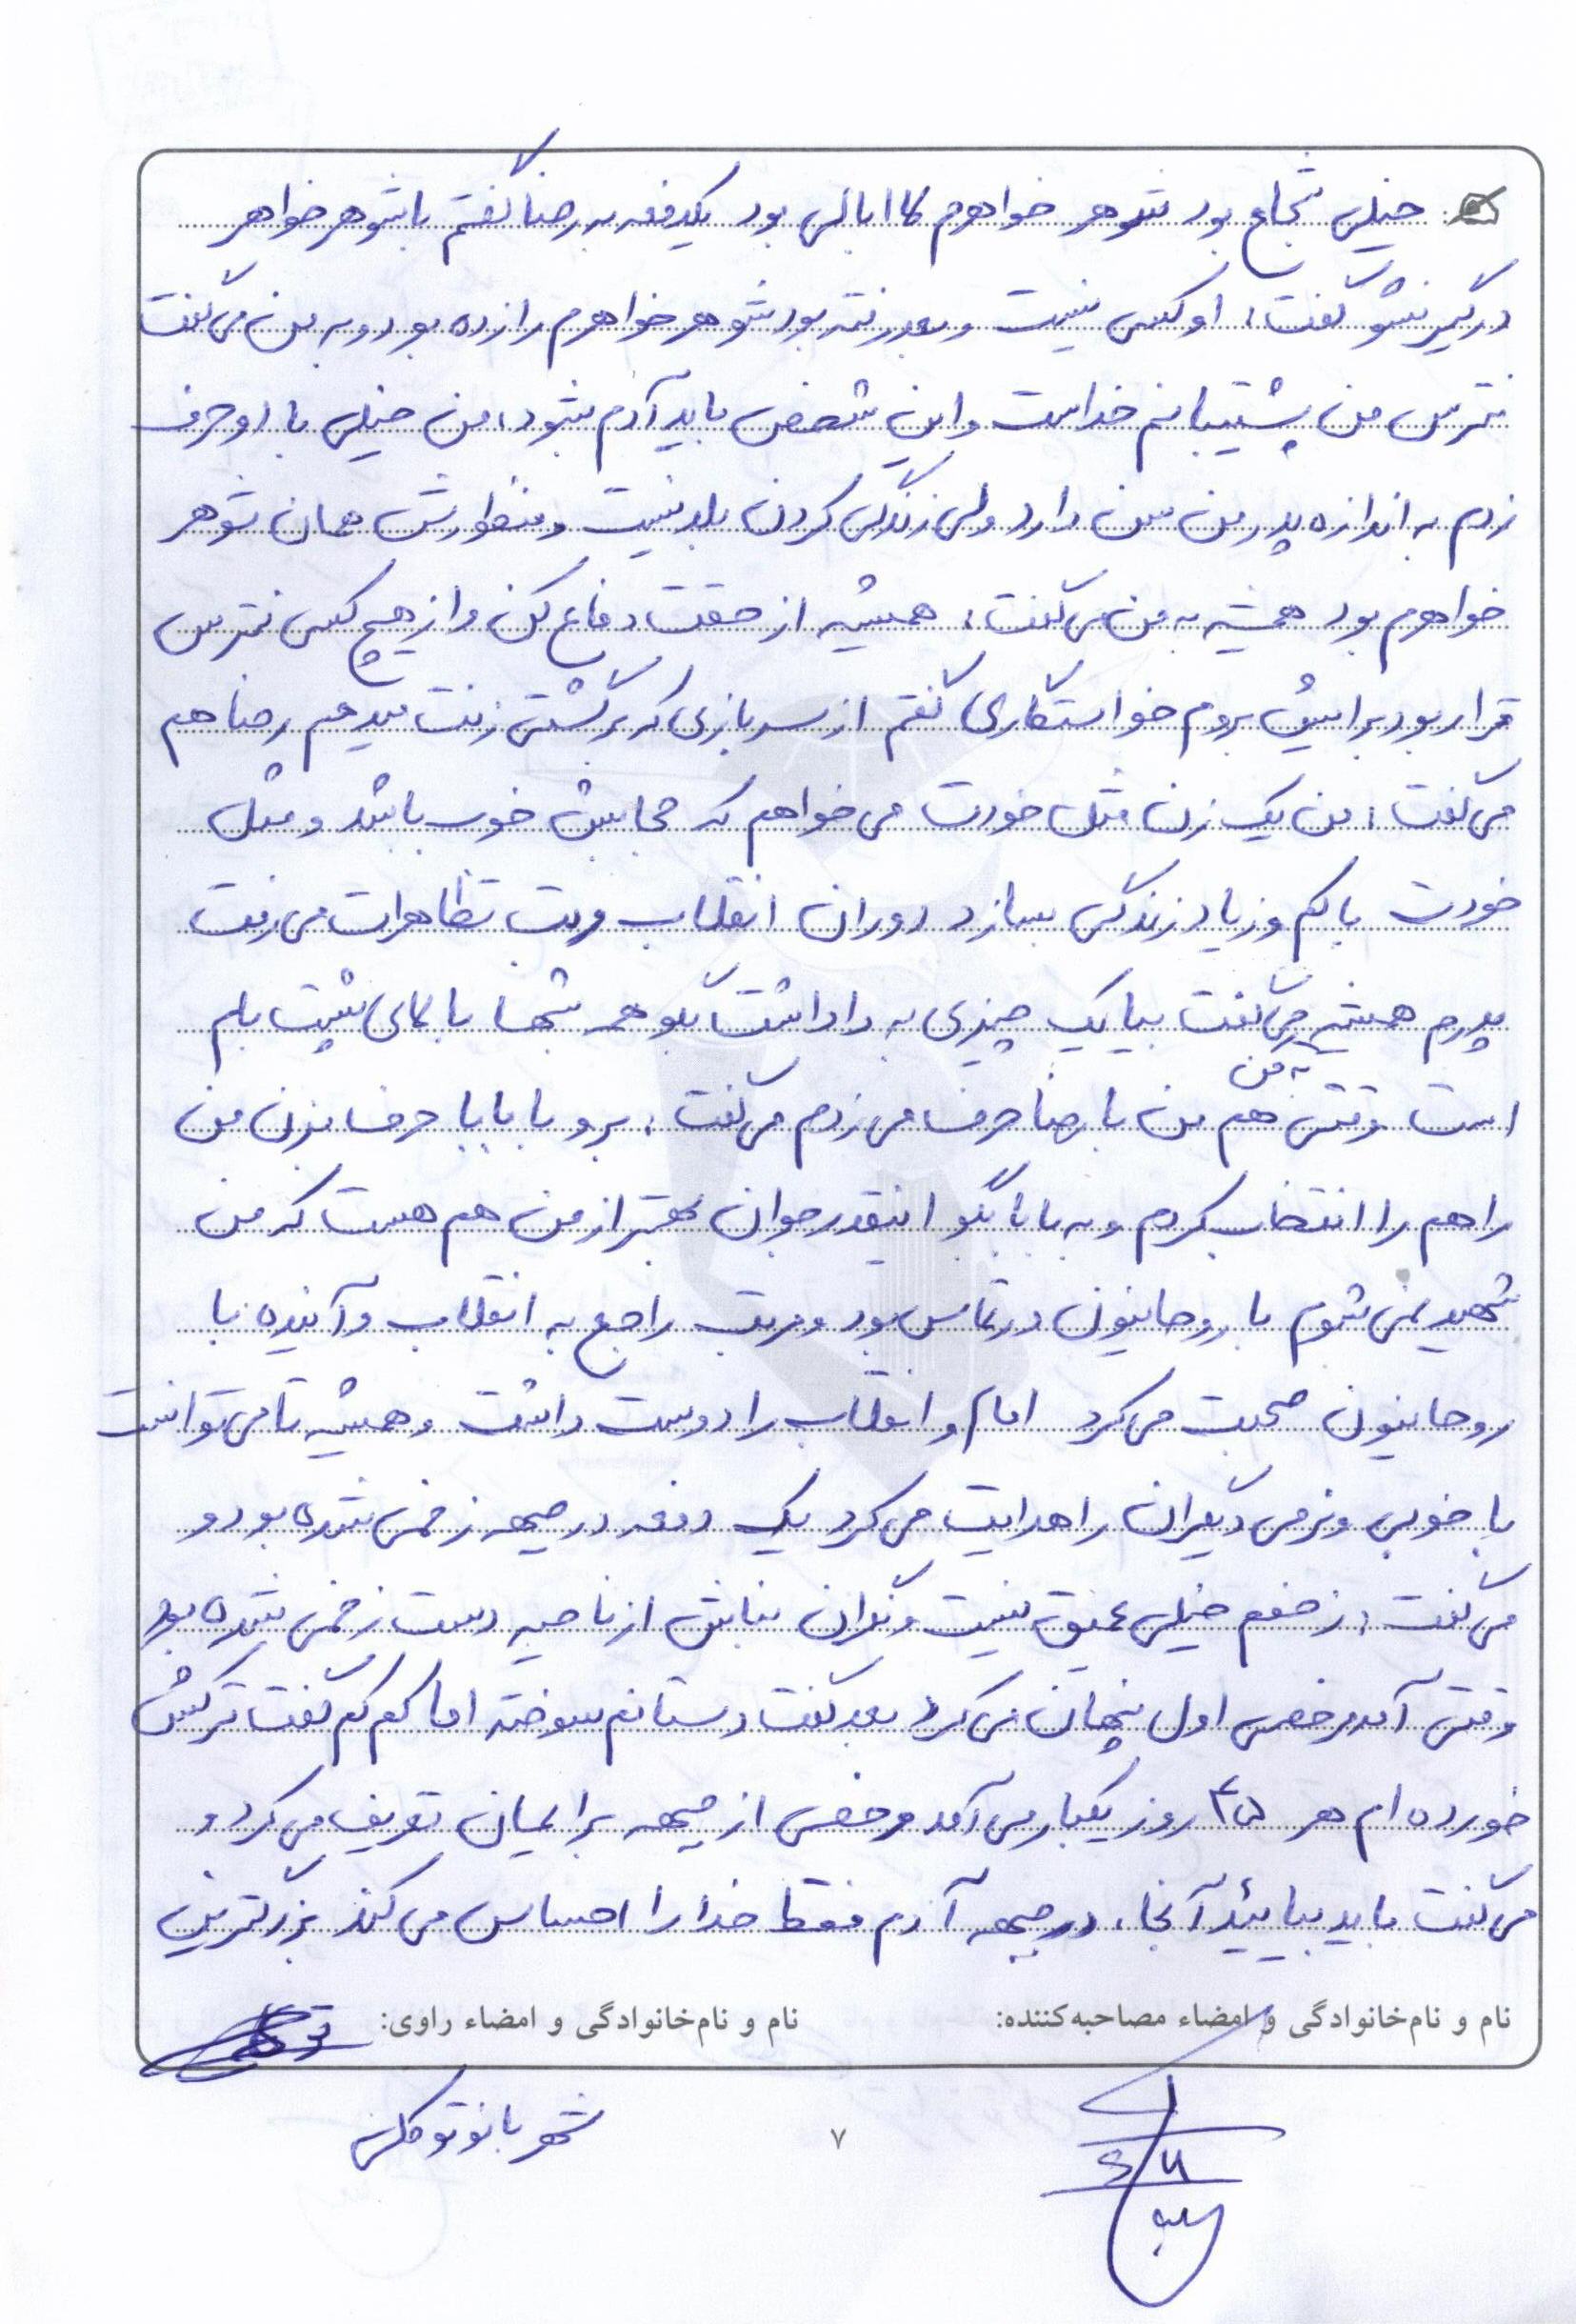 خیلی شجاع بود شوهر خواهرم لاابالی بود یکدفعه به رضا گفتم با شوهر خواهر
درگیر نشو گفت: او کسی نیست و بعد رفته بود شوهر خواهرم را زده بود و به من می گفت
نترس من پشتیبانم خداست و این شخص باید آدم بشود، من خیلی با او حرف
زدم به اندازه پدر من سن دارد ولی زندگی کردن بلد نیست و منظورش همان شوهر
خواهرم بود همیشه به من می گفت: همیشه از حقت دفاع کن و از هیچ کس نترس
قرار بود برایش بروم خواستگاری گفتم از سربازی که برگشتی زنت میدهم رضا هم
می گفت: من یک زن مثل خودت می خواهم که حجابش خوب باشد و مثل
خودت با کم و زیاد زندگی بسازد دوران انقلاب مرتب تظاهرات می رفت
پدرم همیشه می گفت بیا یک چیزی به داداشت بگو همه شبها بالای پشت بام
به من
است وقتی هم من با رضا حرف می زدم می گفت: برو با بابا حرف بزن من
راهم را انتخاب کردم و به بابا بگو اینقدر جوان بهتر از من هم هست که من
شهید نمی شوم با روحانیون در تماس بود و مرتب راجع به انقلاب و آینده با
روحانیون صحبت می کرد امام و انقلاب را دوست داشت و همیشه تا می توانست
با خوبی و نرمی دیگران را هدایت می کرد یک دفعه در جبهه زخمی شده بود و
می گفت: زخمم خیلی عمیق نیست و نگران نباش از ناحیه دست زخمی شده بود
وقتی آمد مرخصی اول پنهان می کرد بعد گفت دستانم سوخته اما کم کم گفت ترکش
خورده ام هر ۴۵ روز یکبار می آمد مرخصی از جبهه برایمان تعریف می کرد و
می گفت باید بیائید آنجا، در جبهه آدم فقط خدا را احساس می کند بزرگترین
نام و نام‌خانوادگی و امضاء مصاحبه‌کننده: نام و نام‌خانوادگی و امضاء راوی:
شهربانو توکلی
۷